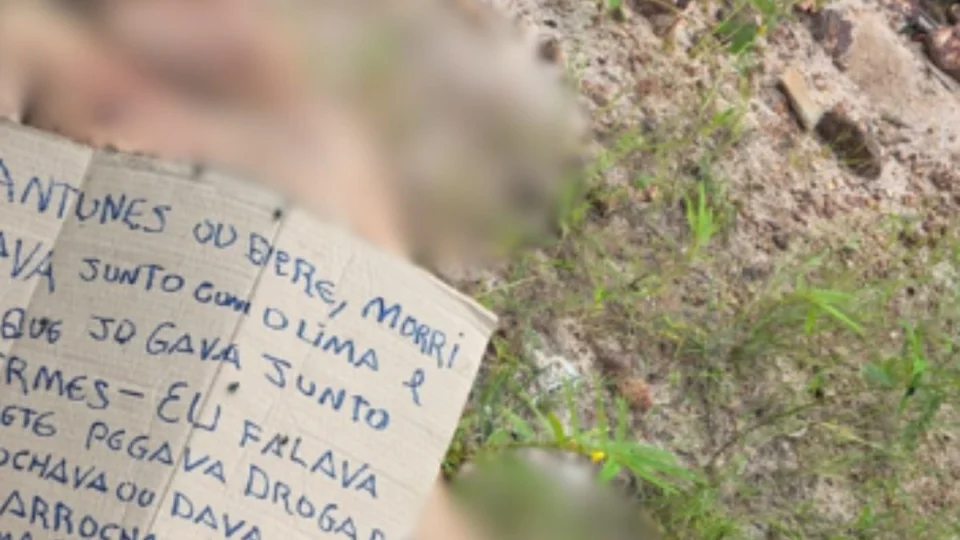 ANTUNES OU BERE, MORRI
AVA JUNTO COM O LIMA E
QUE JOGAVA JUNTO
ERMES - EU FALAVA
ETE PEGAVA DROGA
OCHAVA OU DAVA
ARROCHA